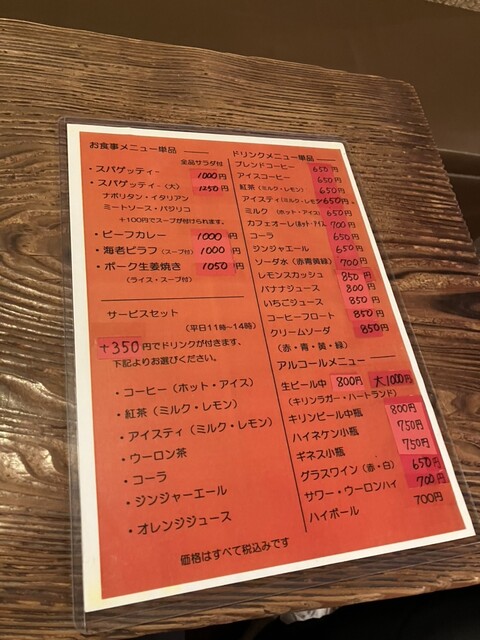 お食事メニュー単品
全品サラダ付
・スパゲッティー 1000円
・スパゲッティー(大) 1250円
ナポリタン・イタリアン
ミートソース・バジリコ
+100円でスープが付けられます。
・ビーフカレー 1000円
・海老ピラフ(スープ付) 1000円
・ポーク生姜焼き 1050円
(ライス・スープ付)
サービスセット
(平日11時~14時)
+350円でドリンクが付きます、
下記よりお選びください。
・コーヒー(ホット・アイス)
・紅茶(ミルク・レモン)
・アイスティ(ミルク・レモン)
・ウーロン茶
・コーラ
・ジンジャーエール
・オレンジジュース
ドリンクメニュー単品
ブレンドコーヒー 650円
アイスコーヒー 650円
紅茶(ミルク・レモン) 650円
アイスティ(ミルク・レモン) 650円
ミルク (ホット・アイス) 650円
カフェオーレ(ホット・アイス) 700円
コーラ 650円
ジンジャエール 650円
ソーダ水(赤青黄緑) 700円
レモンスカッシュ 850円
バナナジュース 800円
いちごジュース 850円
コーヒーフロート 850円
クリームソーダ 850円
(赤・青・黄・緑)
アルコールメニュー
生ビール中 800円 大1000円
(キリンラガー・ハートランド)
キリンビール中瓶 800円
ハイネケン小瓶 750円
ギネス小瓶 750円
グラスワイン(赤・白) 650円
サワー・ウーロンハイ 700円
ハイボール 700円
価格はすべて税込みです